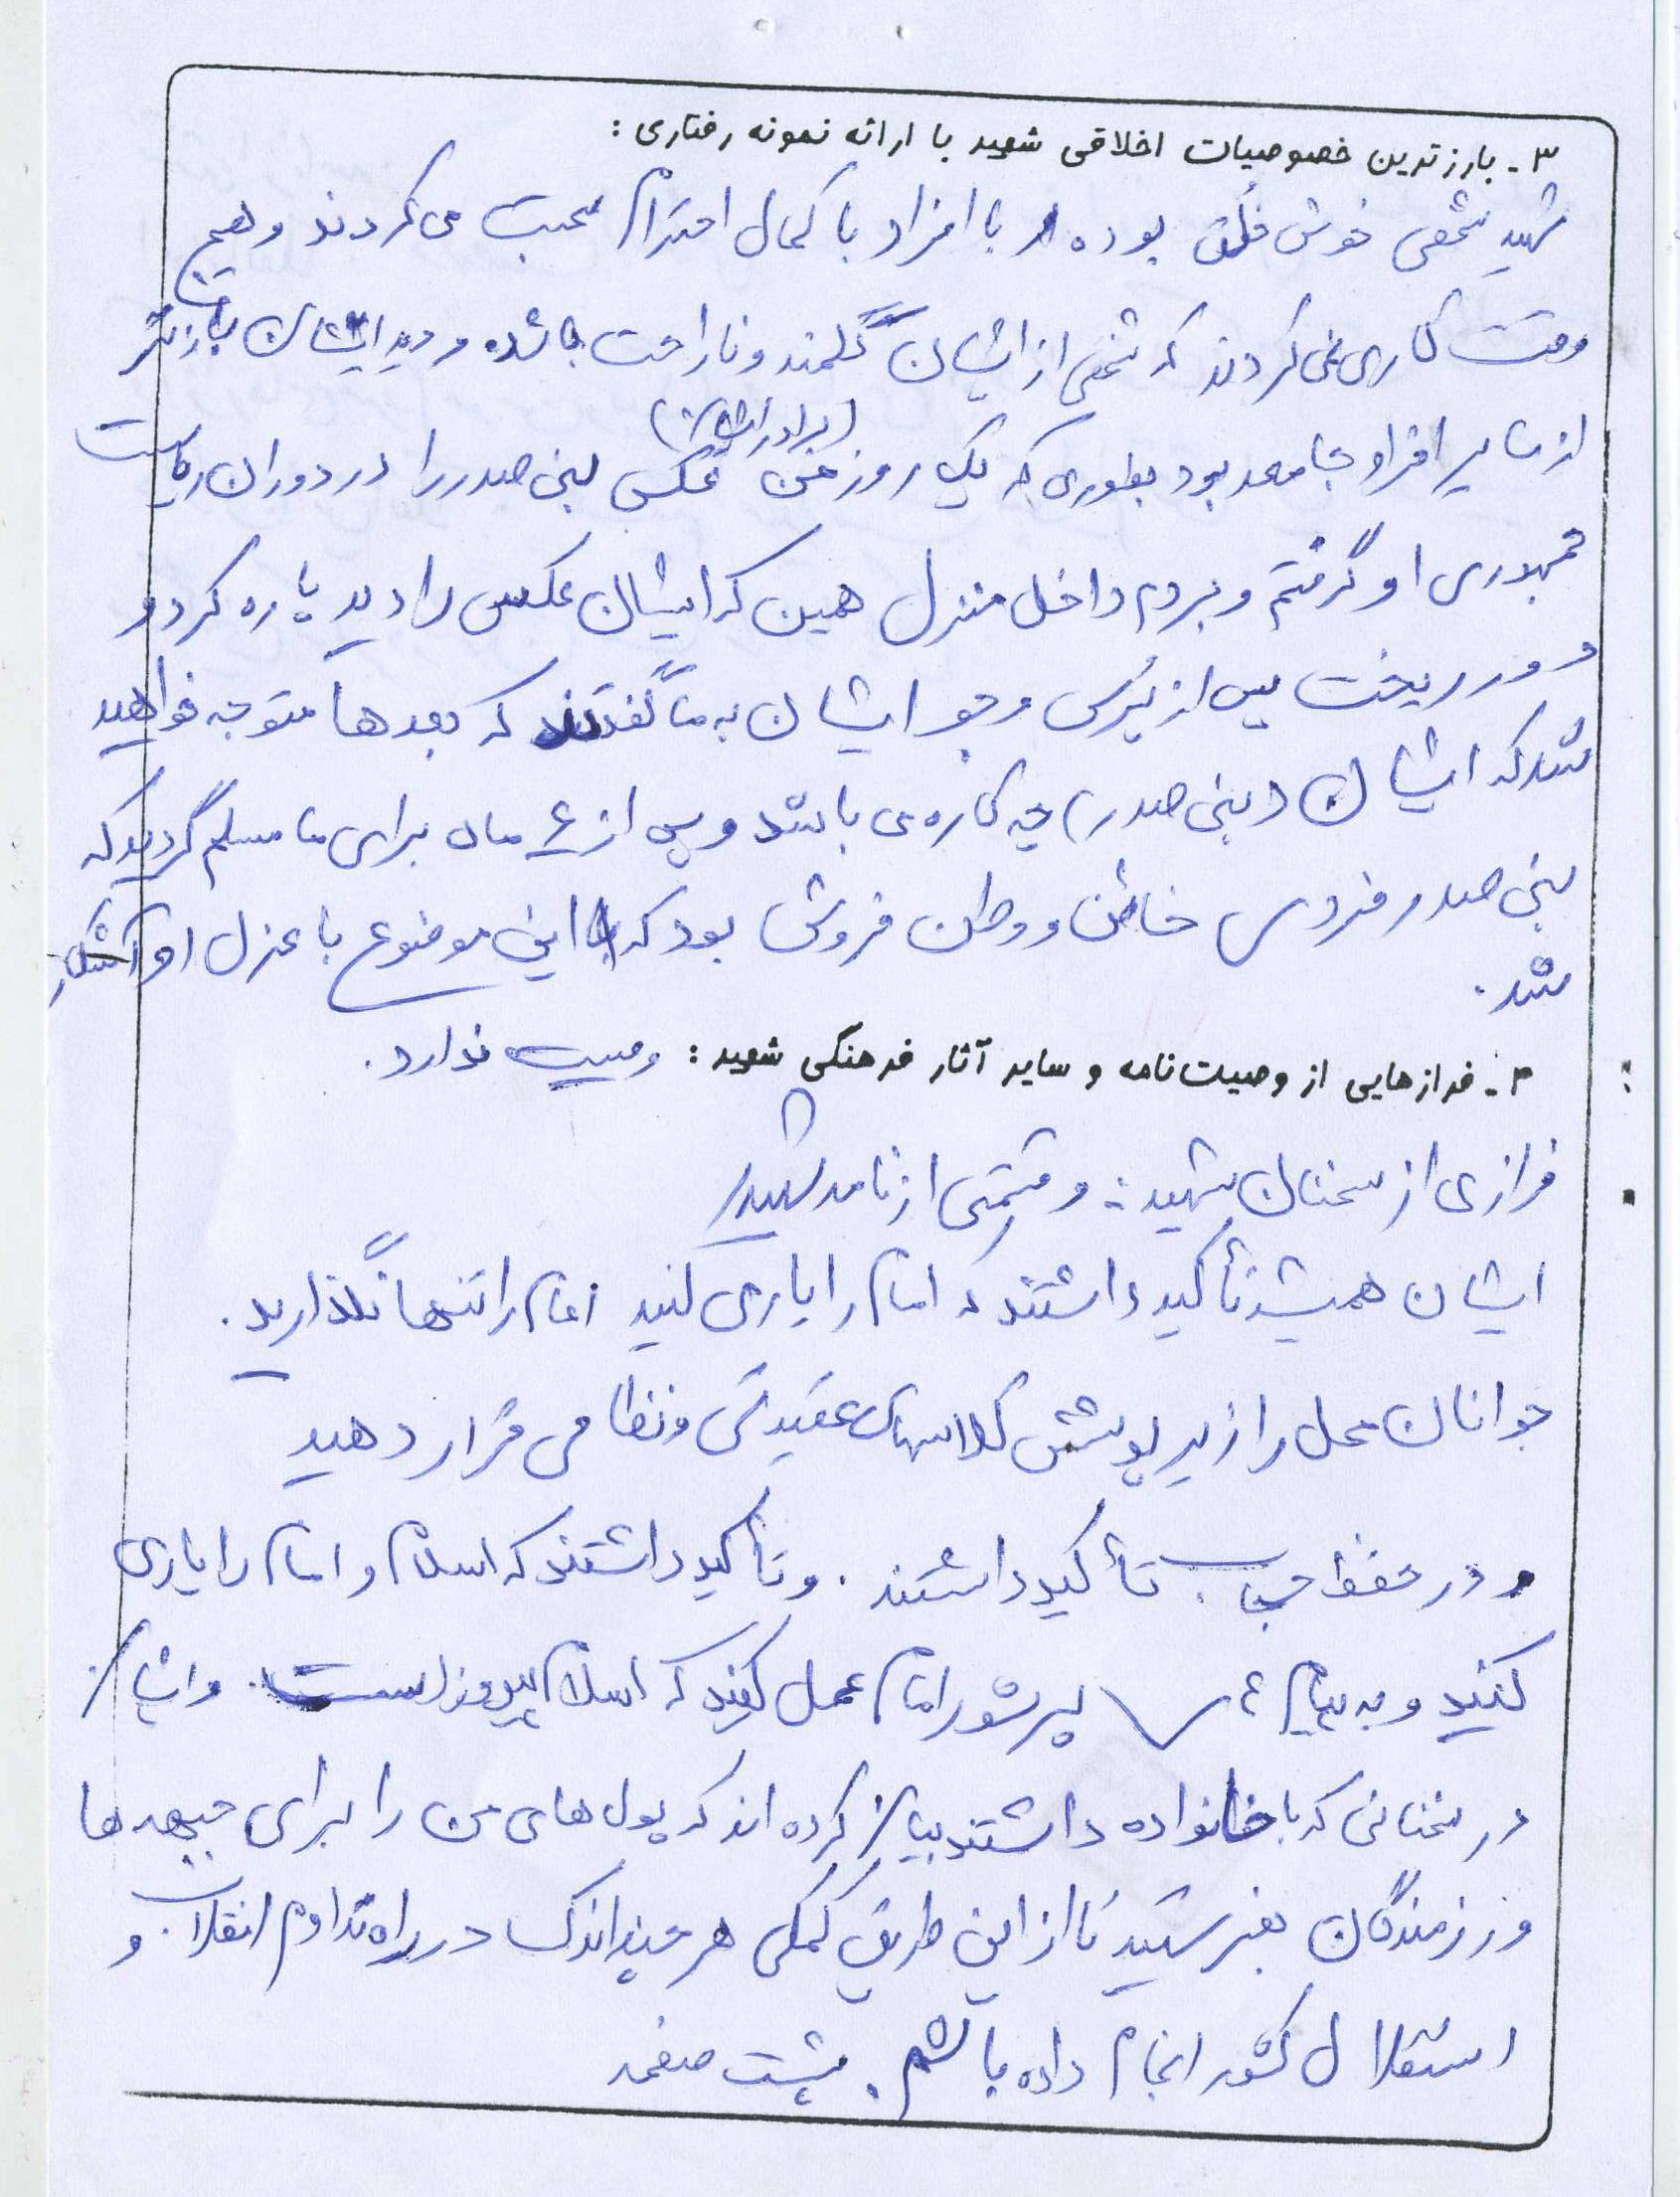 ۳- بارزترین خصوصیات اخلاقی شهید با ارائه نمونه رفتاری:
شهید شخصی خوش خُلق بوده با افراد با کمال احترام صحبت می کردند و هیچ
وقت کاری نمی کردند که شخصی از ایشان گلمند و ناراحت باشد و دید ایشان بازتر
از سایر افراد جامعه بود بطوری که یک روز من (برادر ایشان) عکس بنی صدر را در دوران ریاست
جمهوری او گرفتم و بردم داخل منزل همین که ایشان عکس را دید پاره کرد و
دور ریخت پس از پُرس و جو ایشان به ما گفتند که بعدها متوجه خواهید
شد که ایشان (بنی صدر) چه کاره ی باشد و پس از ۶ ماه برای ما مسلم گردید که
بنی صدر فردی خائن و وطن فروش بود که این موضوع با عزل او آشکار
شد.
۴- فرازهایی از وصیت‌نامه و سایر آثار فرهنگی شهید: وصیت ندارد.
فرازی از سخنان شهید: و قسمتی از نامه شهید
ایشان همیشه تأکید داشتند که امام را یاری کنید امام را تنها نگذارید.
جوانان محل را زیر پوشش کلاسهای عقیدتی و نظامی قرار دهید
و در حفظ حجاب تأکید داشتند. و تأکید داشتند که اسلام و امام را یاری
کنید و به پیام پرشور امام عمل کنید که اسلام پیروز است. و ایشان
در سخنانی که با خانواده داشتند بیان کرده اند که پول های من را برای جبهه ها
و رزمندگان بفرستید تا از این طریق کمکی هر چند اندک در راه تداوم انقلاب و
استقلال کشور انجام داده باشم. پشت صفحه